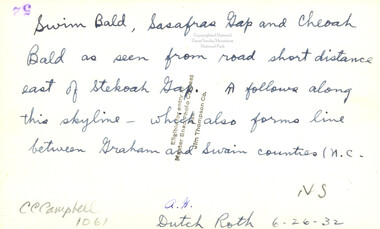 52
Swim Bald, Sasafras Gap and Cheoah
Bald as seen from road short distance
east of Stekoah Gap. A follows along
this skyline - which also forms line
between Graham and Swain counties (N.C.
Jim Thompson Co.
NS
CC Campbell
1061
A.H.
Dutch Roth 6-26-32